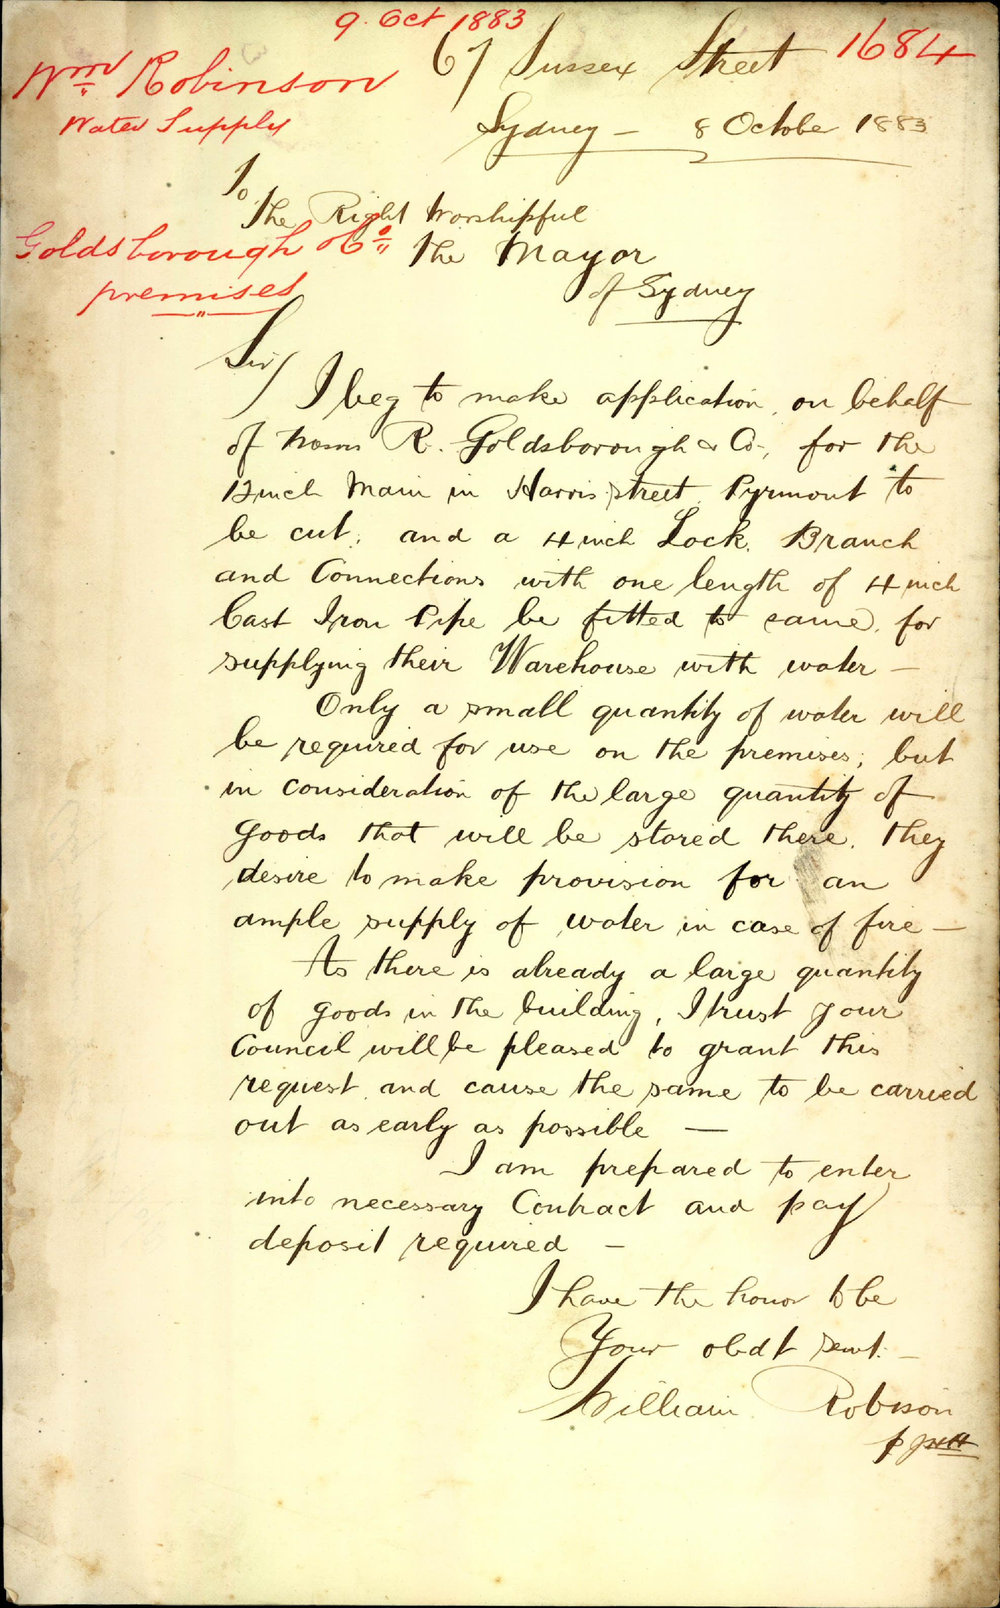 9. Oct 1883
67 Sussex Street
1684
Wm Robinson
Water Supply
Sydney — 8 October 1883
To
The Right Worshipful
Goldsborough & Co
premises
The Mayor
of Sydney
Sir/
I beg to make application, on behalf
of Messrs R. Goldsborough & Co, for the
12 inch Main in Harris Street Pyrmont to
be cut, and a 4 inch Lock, Branch
and Connections with one length of 4 inch
Cast Iron Pipe be fitted to same, for
supplying their Warehouse with water —
Only a small quantity of water will
be required for use on the premises; but
in consideration of the large quantity of
goods that will be stored there, they
desire to make provision for an
ample supply of water in case of fire —
As there is already a large quantity
of goods in the building, I trust your
Council will be pleased to grant this
request, and cause the same to be carried
out as early as possible —
I am prepared to enter
into necessary Contract and pay
deposit required —
I have the honor to be
Your obdt servt. —
William Robison
p